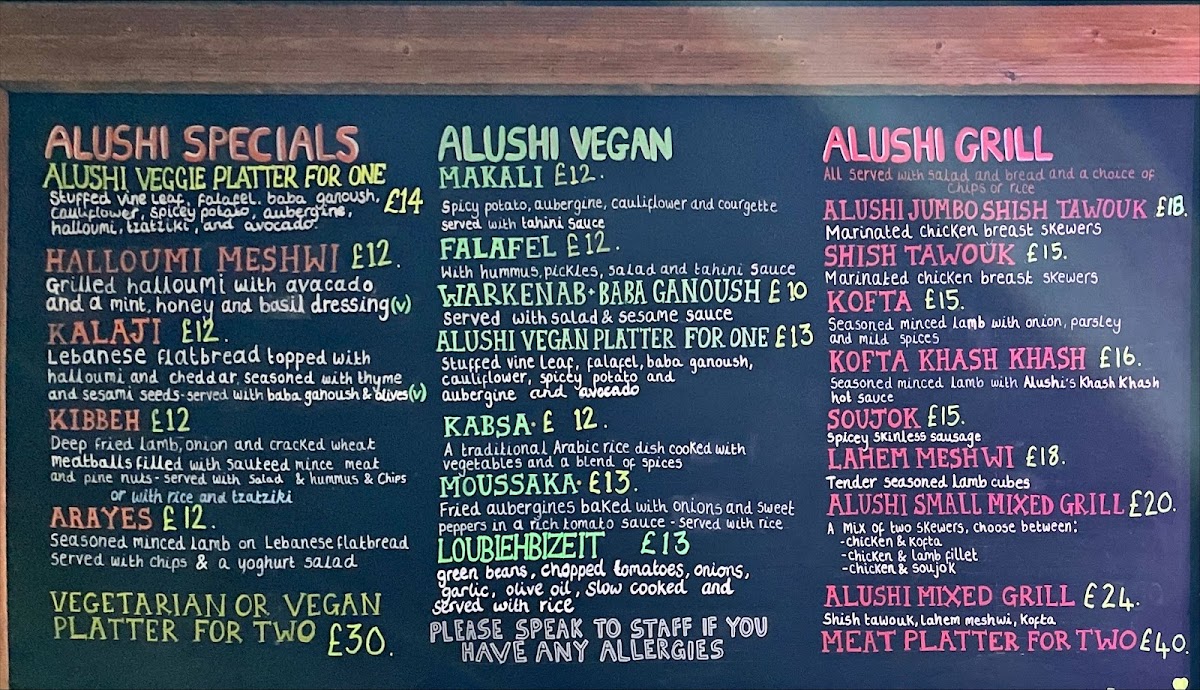 ALUSHI SPECIALS
ALUSHI VEGGIE PLATTER FOR ONE
Stuffed vine leaf, falafel, baba ganoush, £14
Cauliflower, spicey potato, aubergine,
halloumi, tzatziki, and avocado.
HALLOUMI MESHWI £12.
Grilled halloumi with avocado
and a mint, honey and basil dressing (v)
KALAJI £12.
Lebanese flatbread topped with
halloumi and cheddar, seasoned with thyme
and sesami seeds - served with baba ganoush & olives (v)
KIBBEH £12
Deep fried lamb, onion and cracked wheat
meatballs filled with sauteed mince meat
and pine nuts - served with salad & hummus & Chips
or with rice and tzatziki
ARAYES £12.
Seasoned minced lamb on Lebanese flatbread
Served with chips & a yoghurt salad
VEGETARIAN OR VEGAN
PLATTER FOR TWO £30.
ALUSHI VEGAN
MAKALI £12.
Spicy potato, aubergine, cauliflower and courgette
served with tahini sauce
FALAFEL £12.
With hummus, pickles, salad and tahini sauce
WARKENAB + BABA GANOUSH £10
Served with salad & sesame sauce
ALUSHI VEGAN PLATTER FOR ONE £13
Stuffed vine leaf, falafel, baba ganoush,
cauliflower, spicey potato and
aubergine and avocado
KABSA. £ 12.
A traditional Arabic rice dish cooked with
vegetables and a blend of spices
MOUSSAKA. £13.
Fried aubergines baked with onions and sweet
peppers in a rich tomato sauce - served with rice
LOUBIEHBIZEIT £13
green beans, chopped tomatoes, onions,
garlic, olive oil, slow cooked and
served with rice
PLEASE SPEAK TO STAFF IF YOU
HAVE ANY ALLERGIES
ALUSHI GRILL
All served with salad and bread and a choice of
chips or rice
ALUSHI JUMBO SHISH TAWOUK £18.
Marinated chicken breast skewers
SHISH TAWOUK £15.
Marinated chicken breast skewers
KOFTA £15.
Seasoned minced lamb with onion, parsley
and mild spices
KOFTA KHASH KHASH £16.
Seasoned minced lamb with Alushi's Khash Khash
hot sauce
SOUJOK £15.
Spicey skinless sausage
LAHEM MESHWI £18.
Tender seasoned lamb cubes
ALUSHI SMALL MIXED GRILL £20.
A mix of two skewers, choose between:
-chicken & kofta
-chicken & lamb fillet
-chicken & soujok
ALUSHI MIXED GRILL £24.
Shish tawouk, lahem meshwi, kofta
MEAT PLATTER FOR TWO £40.